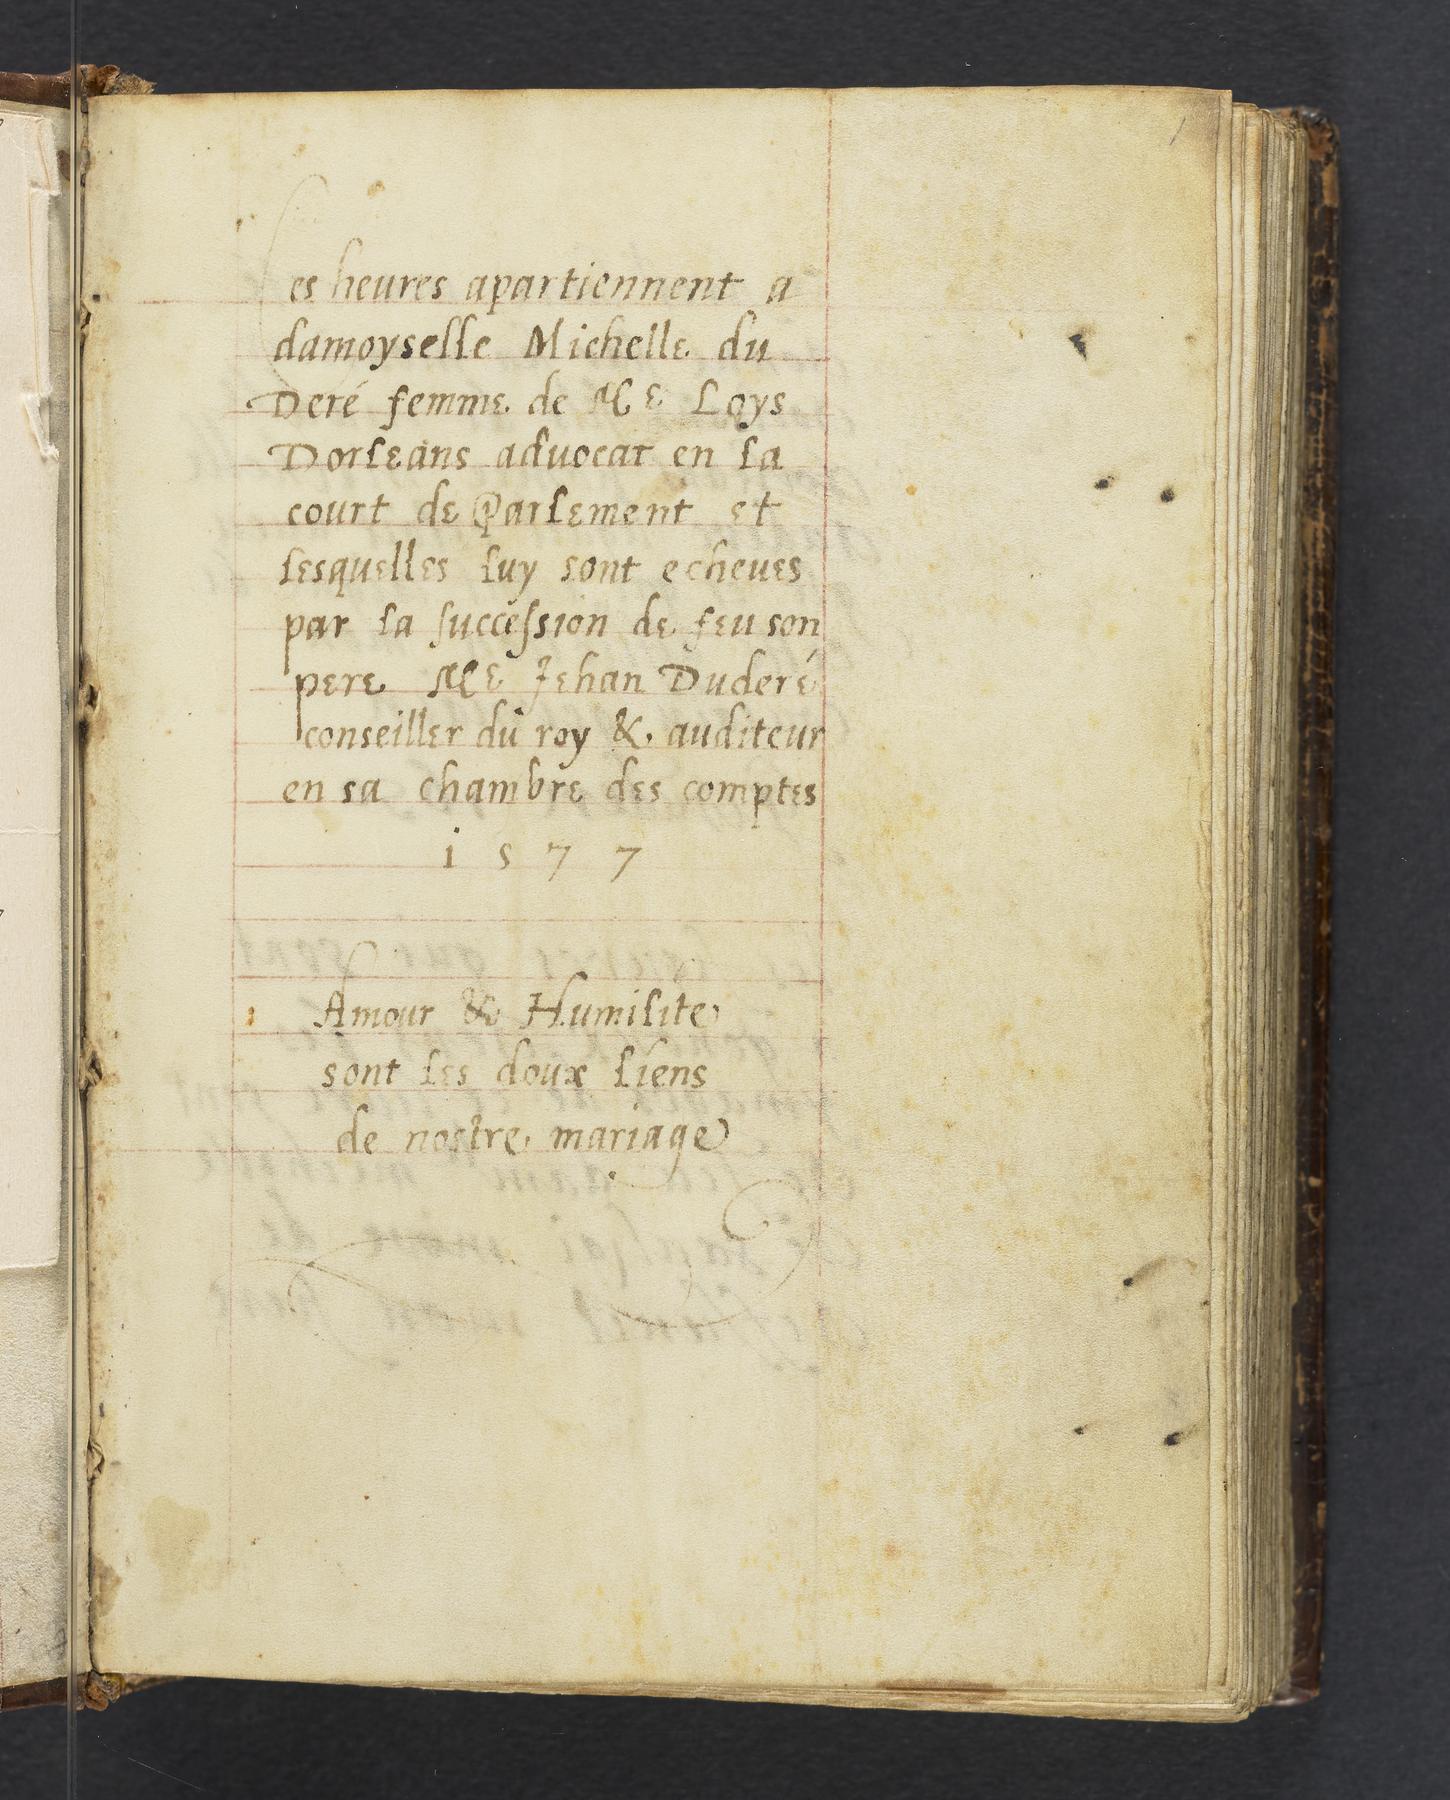 1
Ces heures apartiennent a
damoyselle Michelle du
Deré femme de Me Loys
Dorleans advocat en la
court de Parlement et
lesquelles luy sont echeues
par la succession de feu son
pere Me Jehan Duderé
conseiller du roy & auditeur
en sa chambre des comptes
1577
Amour & Humilite
sont les doux liens
de nostre mariage